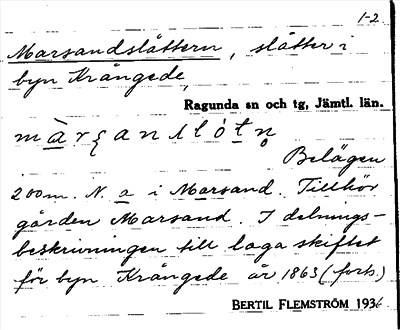 1-2
Marsandslåttern, slåtter i
byn Krångede,
Ragunda sn och tg, Jämtl. län.
màrʃanslótn̥
Belägen
200 m. N. a i Marsand. Tillhör
gården Marsand. I delnings-
beskrivningen till laga skiftet
för byn Krångede år 1863 (forts.)
BERTIL FLEMSTRÖM 1936